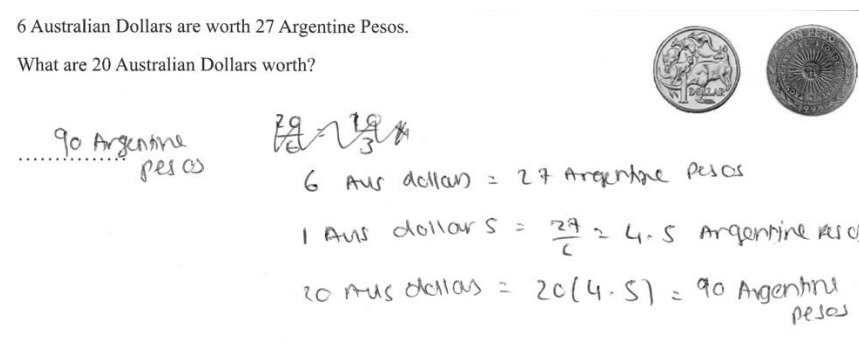 6 Australian Dollars are worth 27 Argentine Pesos.
What are 20 Australian Dollars worth?
DOLLAR
UN PESO
90 Argentine
pesos
6 Aus dollars = 27 Argentine Pesos
1 Aus dollars = 27/6 = 4.5 Argentine
20 Aus dollars = 20(4.5) = 90 Argentine
pesos